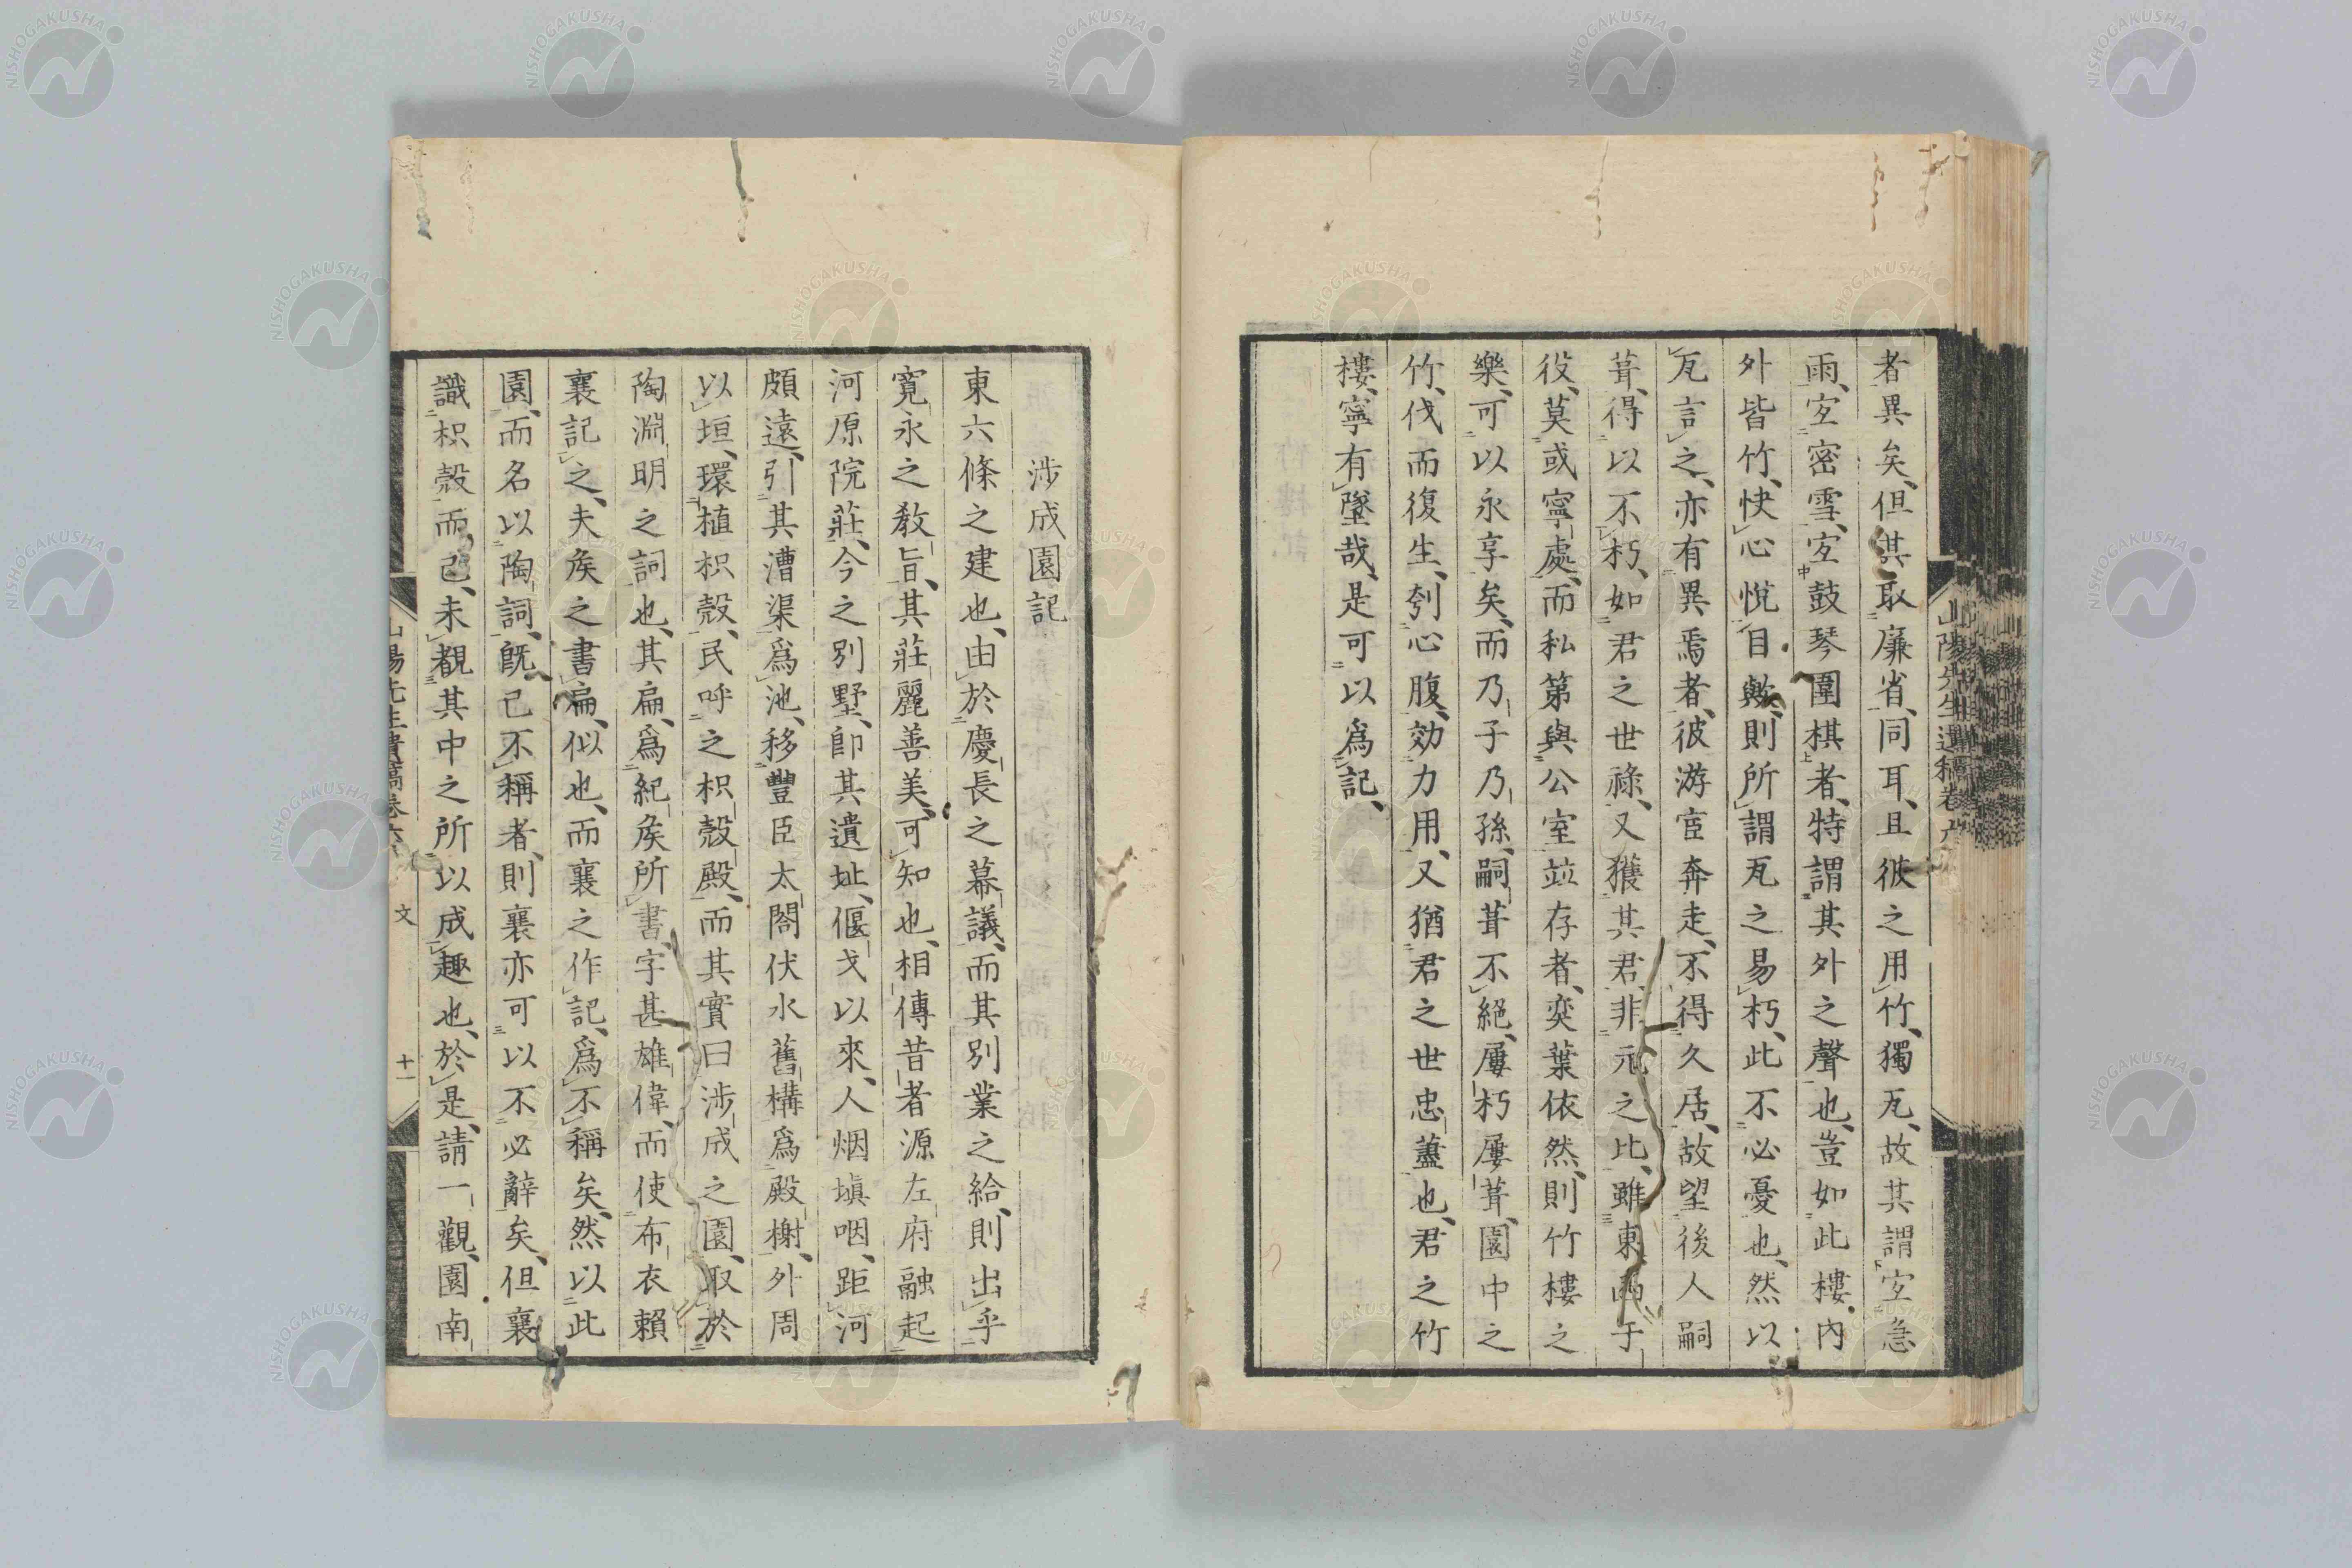 者異矣、但其取廉省、同耳、且彼之用竹、獨瓦、故其謂宜急
雨、宜密雪、宜鼓琴圍棋者、特謂其外之聲也、豈如此樓内
外皆竹、快心悅目歟、則所謂瓦之易朽、此不必憂也、然以
瓦言之、亦有異焉者、彼游宦奔走、不得久居、故望後人嗣
葺、得以不朽、如君之世祿、又獲其君、非元之比、雖東西于
役、莫或寧處、而私第與公室竝存者、奕葉依然、則竹樓之
樂、可以永享矣、而乃子乃孫、嗣葺不絕、屢朽屢葺、園中之
竹、伐而復生、刳心腹、効力用、又猶君之世忠藎也、君之竹
樓、寧有墜哉、是可以爲記、
涉成園記
東六條之建也、由於慶長之幕議、而其別業之給、則出乎
寬永之教旨、其莊麗善美、可知也、相傳昔者源左府融起
河原院莊、今之別墅、卽其遺址、偃戈以來、人烟塡咽、距河
頗遠、引其漕渠爲池、移豐臣太閤伏水舊構爲殿榭、外周
以垣、環植枳殼、民呼之枳殼殿、而其實曰涉成之園、取於
陶淵明之詞也、其扁、爲紀矦所書、字甚雄偉、而使布衣賴
襄記之、夫矦之書扁、似也、而襄之作記、爲不稱矣、然以此
園、而名以陶詞、旣已不稱者、則襄亦可以不必辭矣、但襄
識枳殼而已、未覩其中之所以成趣也、於是、請一觀、園南
山陽先生遺稿卷六
文
十一
山陽先生遺稿卷六
NISHOGAKUSHA